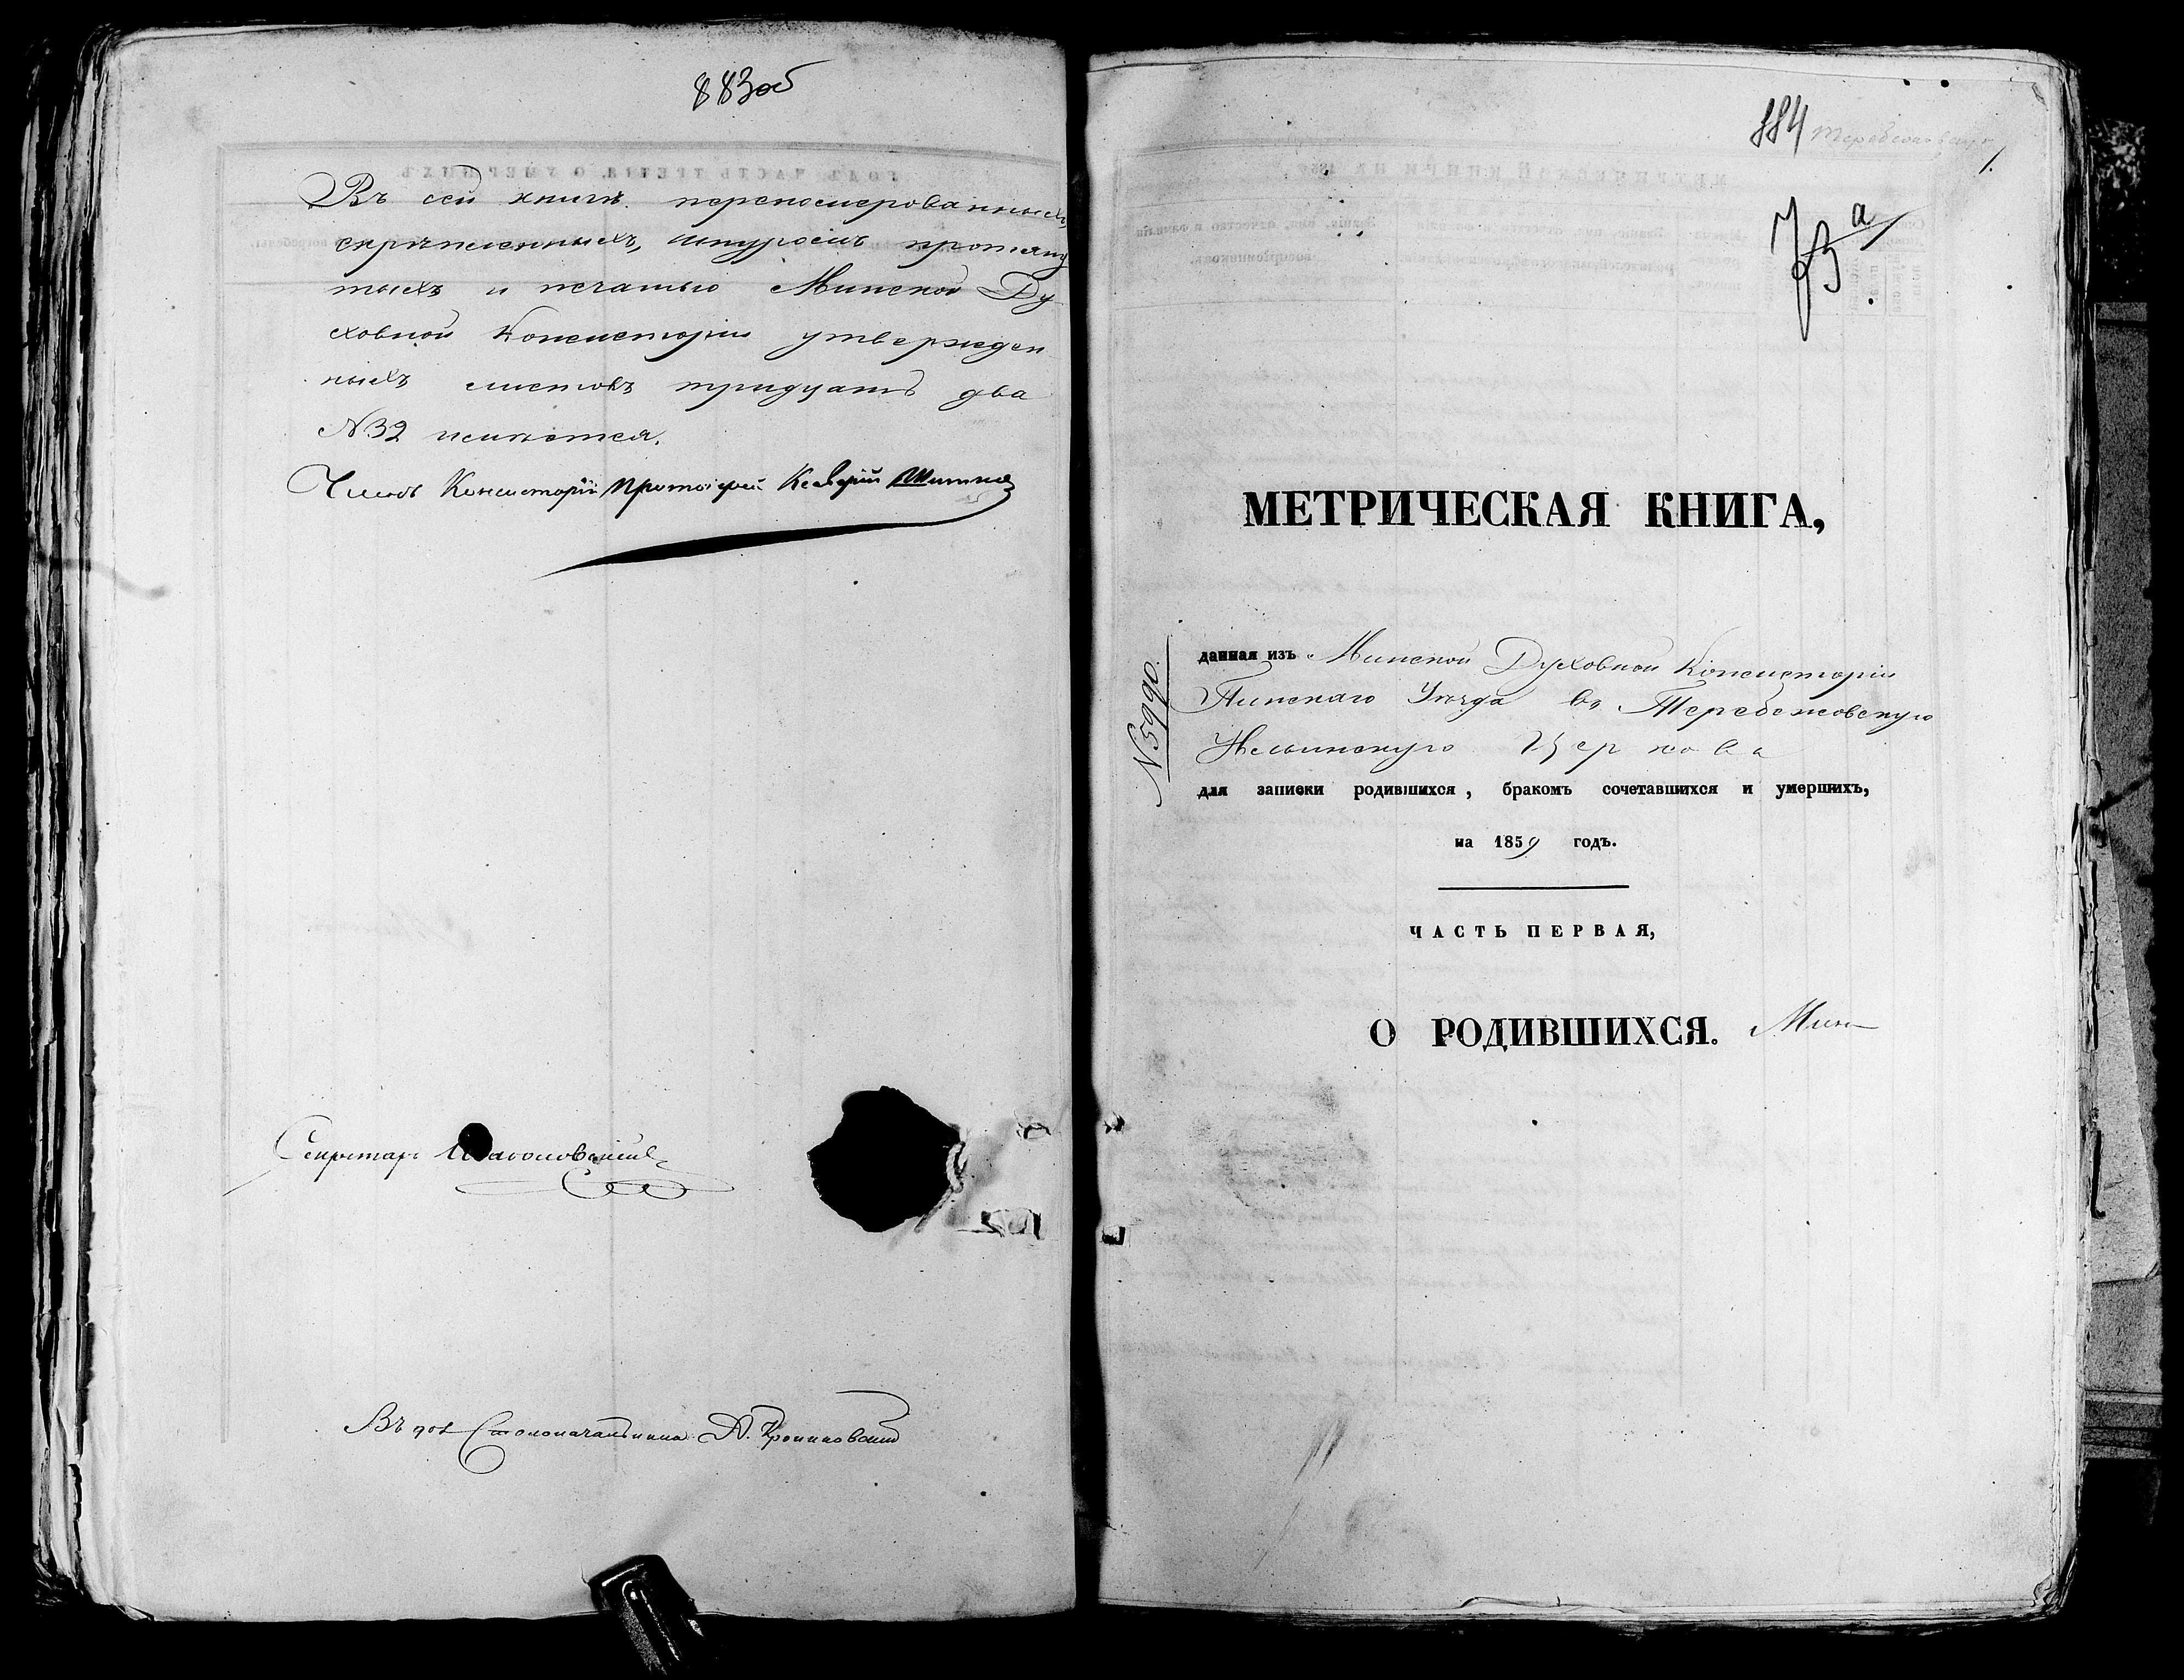 883об
Въ сей книгѣ переномерованныхъ,
скрѣпленныхъ, шнуромъ протяну
тыхъ и печатью Минской Ду
ховной Консисторіи утвержден
ныхъ листовъ тридцать два
№32 числится.
Членъ Консисторіи Протоіерей Ксаверій
Секретарь
Въ дол. Столоначальника А.
884 Теребежовскую
1.
73а
МЕТРИЧЕСКАЯ КНИГА,
№5990.
данная изъ Минской Духовной Консисторіи
Пинскаго Уѣзда въ Теребежовскую
Ильинскую Церковь
для записки родившихся, бракомъ сочетавшихся и умершихъ,
на 1859 годъ.
ЧАСТЬ ПЕРВАЯ,
О РОДИВШИХСЯ.